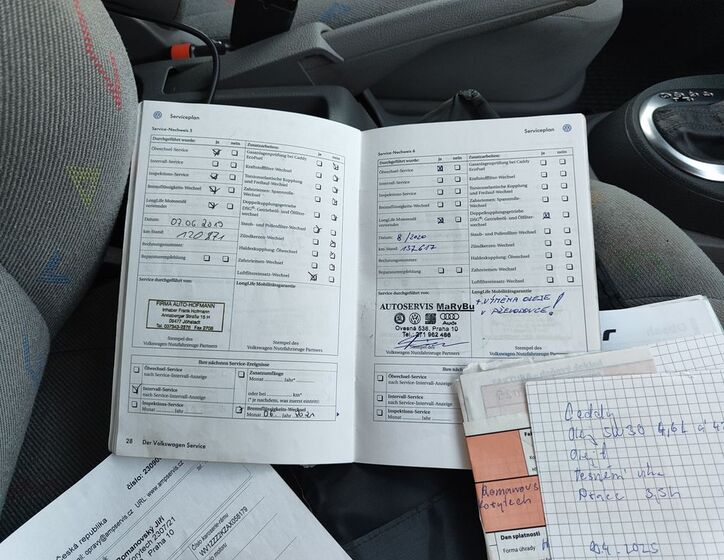 Serviceplan
Service-Nachweis 5
Durchgeführt wurde: ja nein
Ölwechsel-Service
Intervall-Service
Inspektions-Service
Bremsflüssigkeits-Wechsel
LongLife Motorenöl
verwendet
Datum: 07.06.2019
km-Stand: 120871
Rechnungsnummer:
Reparaturumfang
Zusatzarbeiten: ja nein
Gasanlagenprüfung bei Caddy
EcoFuel
Kraftstofffilter-Wechsel
Torsionselastische Kupplung
und Freilauf-Wechsel
Zahnriemen-Spannrolle-
Wechsel
Doppelkupplungsgetriebe
DSG®: Getriebeöl- und Ölfilter-
wechsel
Staub- und Pollenfilter-Wechsel
Zündkerzen-Wechsel
Haldexkupplung: Ölwechsel
Zahnriemen-Wechsel
Luftfiltereinsatz-Wechsel
Service durchgeführt von:
LongLife Mobilitätsgarantie
FIRMA AUTO-HOFMANN
Inhaber Frank Hofmann
Annaberger Straße 15 H
09477 Jöhstadt
Stempel des
Volkswagen Nutzfahrzeuge Partners
Stempel des
Volkswagen Nutzfahrzeuge Partners
Ihre nächsten Service-Ereignisse
Ölwechsel-Service
nach Service-Intervall-Anzeige
Intervall-Service
nach Service-Intervall-Anzeige
Inspektions-Service
Zusatzumfänge
Monat ..... Jahr*
oder bei ..... km*
(* je nachdem, was zuerst eintritt)
Bremsflüssigkeits-Wechsel
Monat 06 Jahr 2021
28 Der Volkswagen Service
Serviceplan
Service-Nachweis 6
Durchgeführt wurde: ja nein
Ölwechsel-Service
Intervall-Service
Inspektions-Service
Bremsflüssigkeits-Wechsel
LongLife Motorenöl
verwendet
Datum: 8/2020
km-Stand: 137617
Rechnungsnummer:
Reparaturumfang
Zusatzarbeiten: ja nein
Gasanlagenprüfung bei Caddy
EcoFuel
Kraftstofffilter-Wechsel
Torsionselastische Kupplung
und Freilauf-Wechsel
Zahnriemen-Spannrolle-
Wechsel
Doppelkupplungsgetriebe
DSG®: Getriebeöl- und Ölfilter-
wechsel
Staub- und Pollenfilter-Wechsel
Zündkerzen-Wechsel
Haldexkupplung: Ölwechsel
Zahnriemen-Wechsel
Luftfiltereinsatz-Wechsel
Service durchgeführt von:
LongLife Mobilitätsgarantie
AUTOSERVIS MaRyBu
Audi
Ovesná 538, Praha 10
Tel.: 271 962 466
+ VÝMĚNA OLEJE
V PŘEVODOVCE!
Stempel des
Volkswagen Nutzfahrzeuge Partners
Stempel des
Volkswagen Nutzfahrzeuge Partners
Ihre nächsten
Ölwechsel-Service
nach Service-Intervall-Anzeige
Intervall-Service
nach Service-Intervall-Anzeige
Inspektions-Service
Monat ..... Jahr
Caddy
Olej 5W30 4,6l á
Olej f
Těsnění víka
Práce 3,5h
Dan splatnosti
Forma úhrady
Česká republika
opravy@ampservis.cz URL www.ampservis.cz
Romanovský Jiří
2307/21
Praha 10